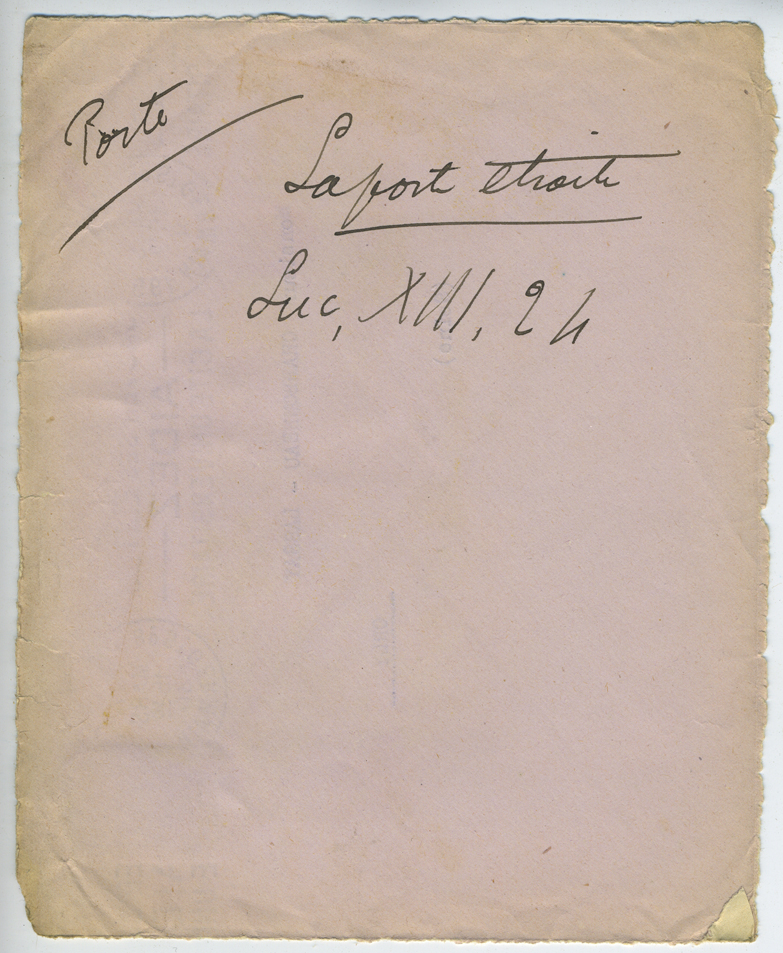 Porte
La porte étroite
Luc, XIII, 24